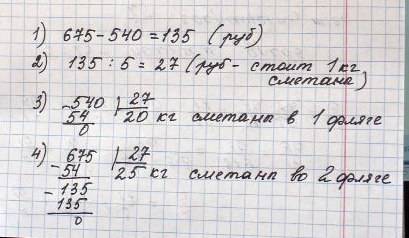 1) 675-540=135 (руб)
2) 135:5=27 (руб- стоит 1кг
сметана)
3) -540 | 27
54 20 кг сметана в 1 фляге
0
4) 675 | 27
-54 25 кг сметана во 2 фляге
-135
135
0